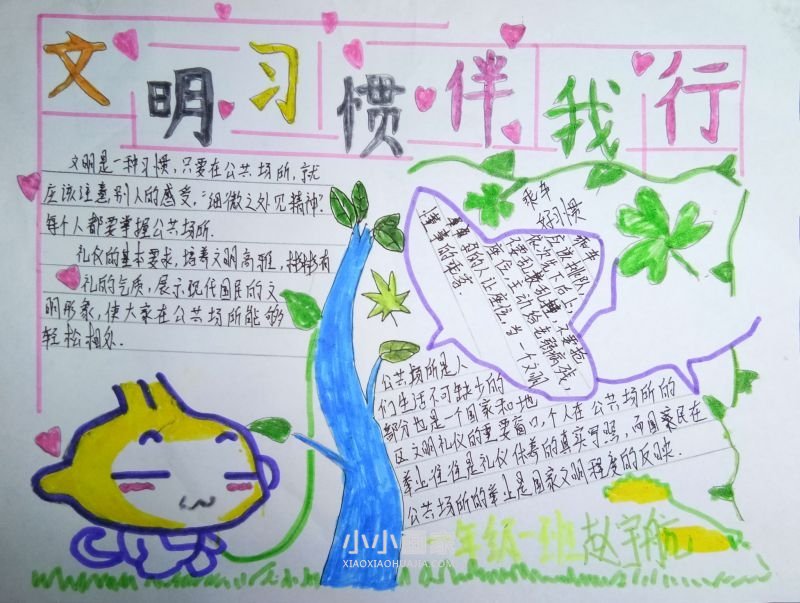 文明习惯伴我行
文明是一种习惯,只要在公共场所,就
应该注意别人的感受,“细微之处见精神”
每个人都要掌握公共场所.
礼仪的基本要求,培养文明高雅,彬彬有
礼的气质,展示现代国民的文
明形象,使大家在公共场所能够
轻松相处.
乘车
好习惯
乘车
应该排队,
依次先下后上,
座位,主动给老弱病残
有的人让座位,当一个文明
懂事的乘客.
公共场所是人
们生活不可缺少的
部分也是一个国家和地
区文明礼仪的重要窗口,个人在公共场所的
举止往往是礼仪休养的真实写照,而国家民在
公共场所的举止是国家文明程度的反映.
年级一班赵宇航
小小画家
XIAOXIAOHUAJIA.COM